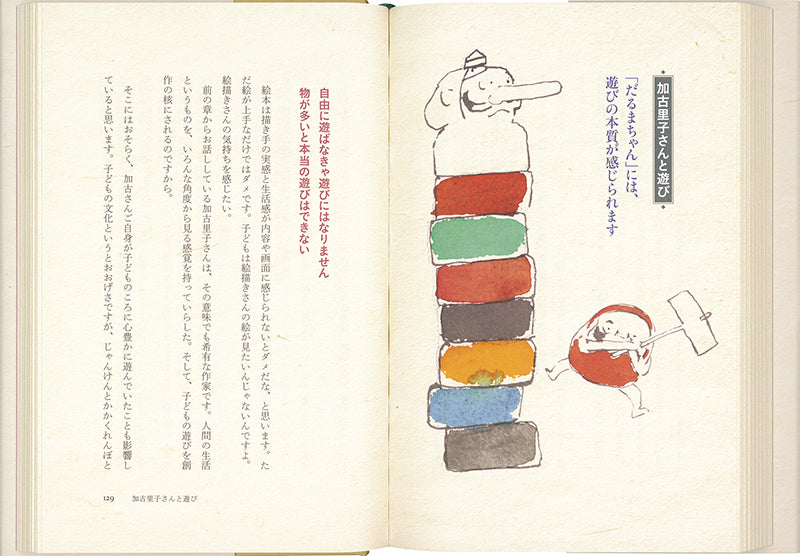 加古里子さんと遊び
「だるまちゃん」には、
遊びの本質が感じられます
自由に遊ばなきゃ遊びにはなりません
物が多いと本当の遊びはできない
絵本は描き手の実感と生活感が内容や画面に感じられないとダメだな、と思います。た
だ絵が上手なだけではダメです。子どもは絵描きさんの絵が見たいんじゃないんですよ。
絵描きさんの気持ちを感じたい。
前の章からお話ししている加古里子さんは、その意味でも希有な作家です。人間の生活
というものを、いろんな角度から見る感覚を持っていらした。そして、子どもの遊びを創
作の核にされるのですから。
そこにはおそらく、加古さんご自身が子どものころに心豊かに遊んでいたことも影響し
ていると思います。子どもの文化というとおおげさですが、じゃんけんとかかくれんぼと
129 加古里子さんと遊び